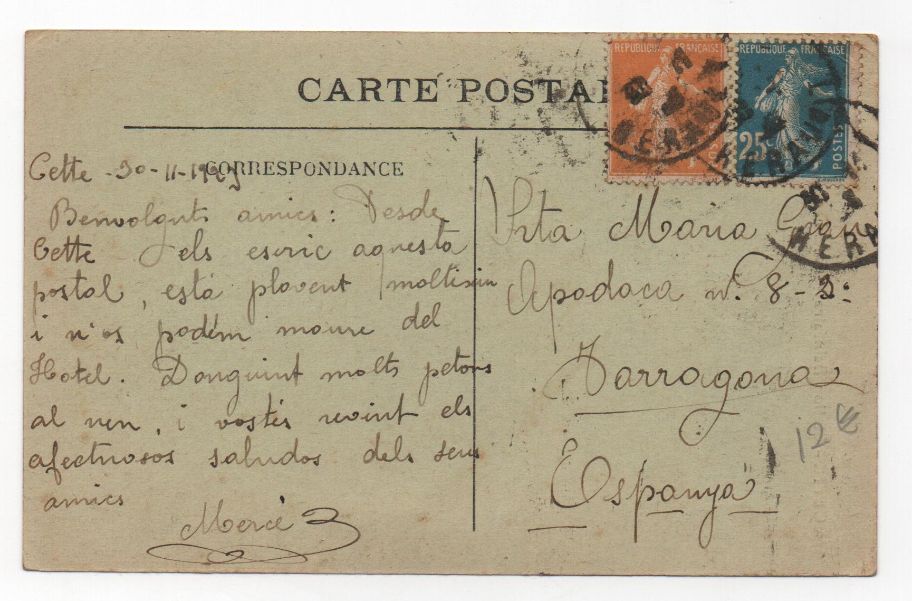 CARTE POSTA
CORRESPONDANCE
REPUBLIQUE FRANÇAISE
REPUBLIQUE FRANÇAISE
25
POSTES
HERAULT
HERAULT
HERA
Cette - 30-11-19
Benvolguts amics: Desde
Cette els escric aquesta
postal, está plovent moltisim
i n'os podém moure del
Hotel. Donguint molts petons
al nen, i vostés revint els
afectuosos saludos dels seus
amics
Mercè
Srta Maria
Apodaca nº. 8-2º
Tarragona
Espanya
12€